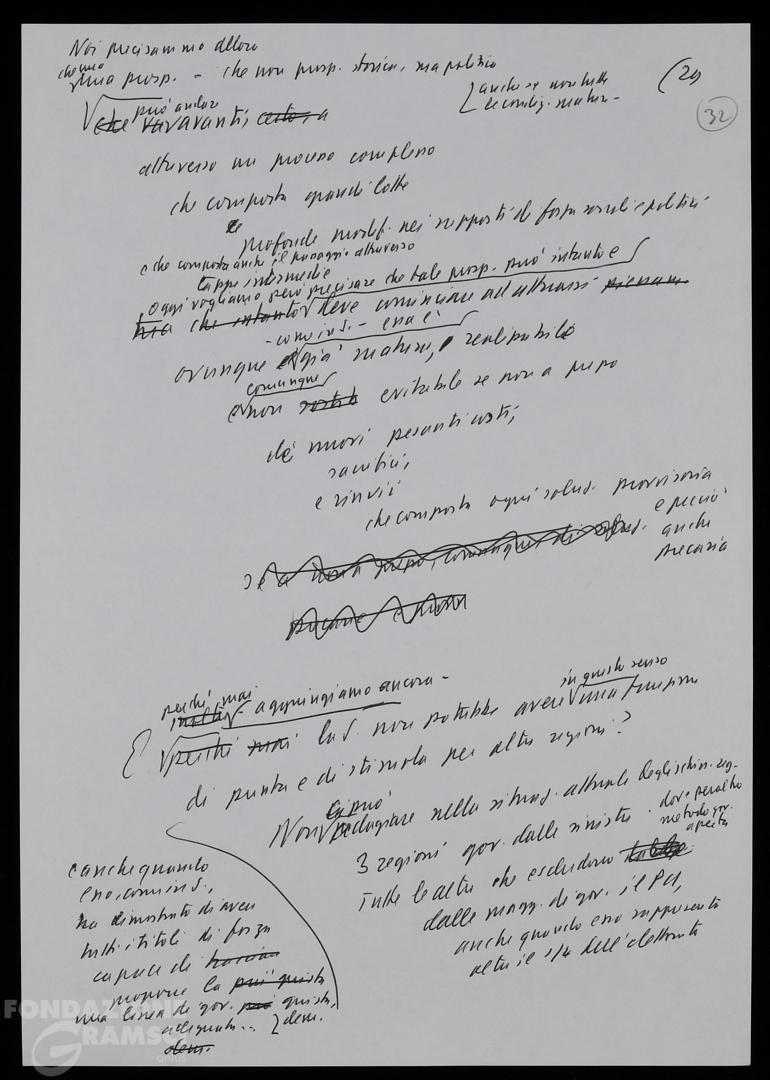 Noi precisammo allora
che una
una prosp. - che non prosp. storica, ma politica
(29
32
[anche se non tutte
le condiz. mature -
può andare
che va avanti, certo, a
attraverso un processo complesso
che comporta grandi lotte
e
profonde modif. nei rapporti di forza sociali e politici
e che comporta anche il passaggio attraverso
tappe intermedie
Oggi vogliamo però precisare che tale prosp. può intanto e
ma che intanto deve cominciare ad attuarsi
- come in S. - essa è
ovunque già matura, e realizzabile
comunque
e non evitabile se non a prezzo
di nuovi pesanti costi,
sacrifici,
e rinvii
che comporta ogni soluz. provvisoria
e perciò
anche
precaria
perché mai
- aggiungiamo ancora -
in questo senso
E perché mai la S. non potrebbe avere una funzione
di punta e di stimolo per altre regioni?
Ci può
Non adagiare nella situaz. attuale degli schier. reg.
3 regioni gov. dalle sinistre
dove peraltro
metodo gov.
aperto
Tutte le altre che escludono
dalle magg. di gov. il PCI,
anche quando esso rappresenta
oltre il 1/4 dell'elettorato
e anche quando
esso, come in S.,
ha dimostrato di avere
tutti i titoli di forza
capace di
proporre la più giusta
una linea di gov. più giusta,
adeguata.. ] dem.
dem.
FONDAZIONE
GRAMSCI
onlus